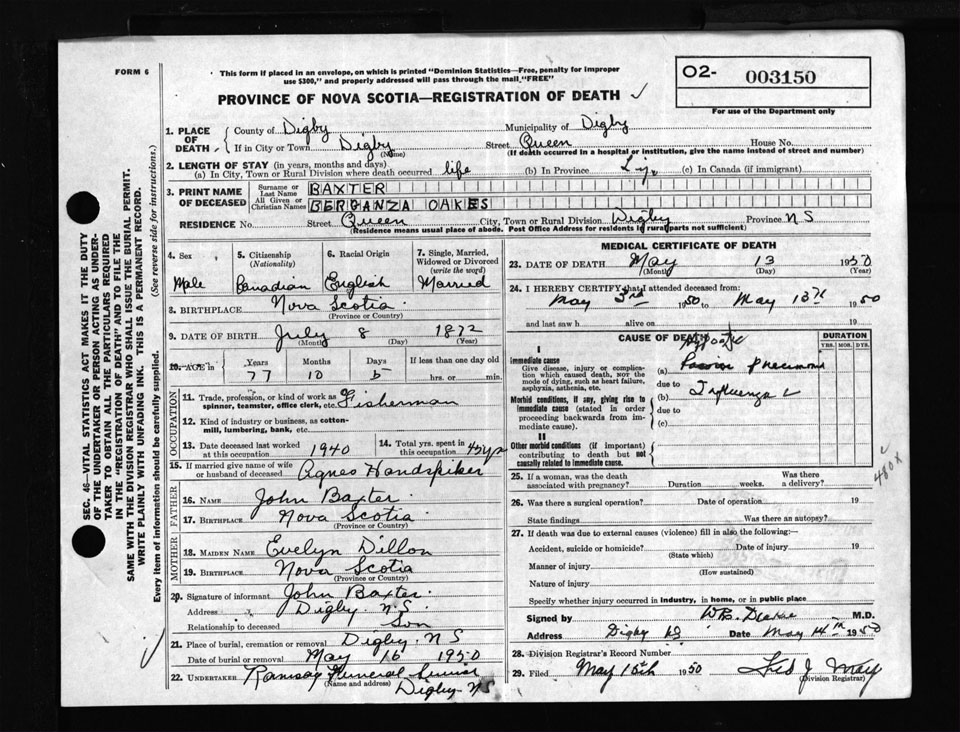 FORM 6
This form if placed in an envelope, on which is printed "Dominion Statistics—Free, penalty for improper
use $300," and properly addressed will pass through the mail "FREE"
PROVINCE OF NOVA SCOTIA—REGISTRATION OF DEATH ✓
O2- 003150
For use of the Department only
SEC. 46—VITAL STATISTICS ACT MAKES IT THE DUTY
OF THE UNDERTAKER OR PERSON ACTING AS UNDER-
TAKER TO OBTAIN ALL THE PARTICULARS REQUIRED
IN THE "REGISTRATION OF DEATH" AND TO FILE THE
SAME WITH THE DIVISION REGISTRAR WHO SHALL ISSUE THE BURIAL PERMIT.
WRITE PLAINLY WITH UNFADING INK. THIS IS A PERMANENT RECORD.
Every item of information should be carefully supplied. (See reverse side for instructions.)
1. PLACE OF DEATH
County of Digby Municipality of Digby
If in City or Town Digby Street Queen House No.
(Name) (If death occurred in a hospital or institution, give the name instead of street and number)
2. LENGTH OF STAY (in years, months and days)
(a) In City, Town or Rural Division where death occurred life (b) In Province Life (c) In Canada (if immigrant)
3. PRINT NAME OF DECEASED
Surname or Last Name BAXTER
All Given or Christian Names BERGANZA OAKES
RESIDENCE No. Street Queen City, Town or Rural Division Digby Province NS
(Residence means usual place of abode. Post Office Address for residents in rural parts not sufficient)
4. Sex Male
5. Citizenship (Nationality) Canadian
6. Racial Origin English
7. Single, Married, Widowed or Divorced (write the word) Married
8. BIRTHPLACE Nova Scotia
(Province or Country)
9. DATE OF BIRTH July 8 1872
(Month) (Day) (Year)
10. AGE IN Years Months Days If less than one day old
77 10 5 hrs. or min.
OCCUPATION
11. Trade, profession, or kind of work as
spinner, teamster, office clerk, etc. Fisherman
12. Kind of industry or business, as cotton-
mill, lumbering, bank, etc.
13. Date deceased last worked at this occupation 1940
14. Total yrs. spent in this occupation 45 yrs
15. If married give name of wife
or husband of deceased Agnes Handspiker
FATHER
16. NAME John Baxter
17. BIRTHPLACE Nova Scotia
(Province or Country)
MOTHER
18. MAIDEN NAME Evelyn Dillon
19. BIRTHPLACE Nova Scotia
(Province or Country)
20. Signature of informant John Baxter
Address Digby N.S.
Relationship to deceased Son
21. Place of burial, cremation or removal Digby. NS
Date of burial or removal May 16 1950
22. UNDERTAKER Ramsay Funeral Service
(Name and address) Digby NS
MEDICAL CERTIFICATE OF DEATH
23. DATE OF DEATH May 13 1950
(Month) (Day) (Year)
24. I HEREBY CERTIFY that I attended deceased from:
May 3rd 1950 to May 13th 1950
and last saw h alive on 19
CAUSE OF DEATH DURATION
YRS. MOS. DYS.
I
Immediate cause
Give disease, injury or complica-
tion which caused death, NOT the
mode of dying, such as heart failure,
asphyxia, asthenia, etc.
(a) Passive pneumonia
due to
Morbid conditions, if any, giving rise to
immediate cause (stated in order
proceeding backwards from im-
mediate cause).
(b) Influenza
due to
(c)
II
Other morbid conditions (if important)
contributing to death but not
causally related to immediate cause.
480X
25. If a woman, was the death associated with pregnancy? Duration weeks. Was there a delivery?
26. Was there a surgical operation? Date of operation 19
State findings Was there an autopsy?
27. If death was due to external causes (violence) fill in also the following:—
Accident, suicide or homicide? Date of injury 19
(State which)
Manner of injury
(How sustained)
Nature of injury
Specify whether injury occurred in industry, in home, or in public place
Signed by M.D.
Address Digby NS Date May 14th 1950
28. Division Registrar's Record Number
29. Filed May 15th 1950 Fred J. May
(Division Registrar)